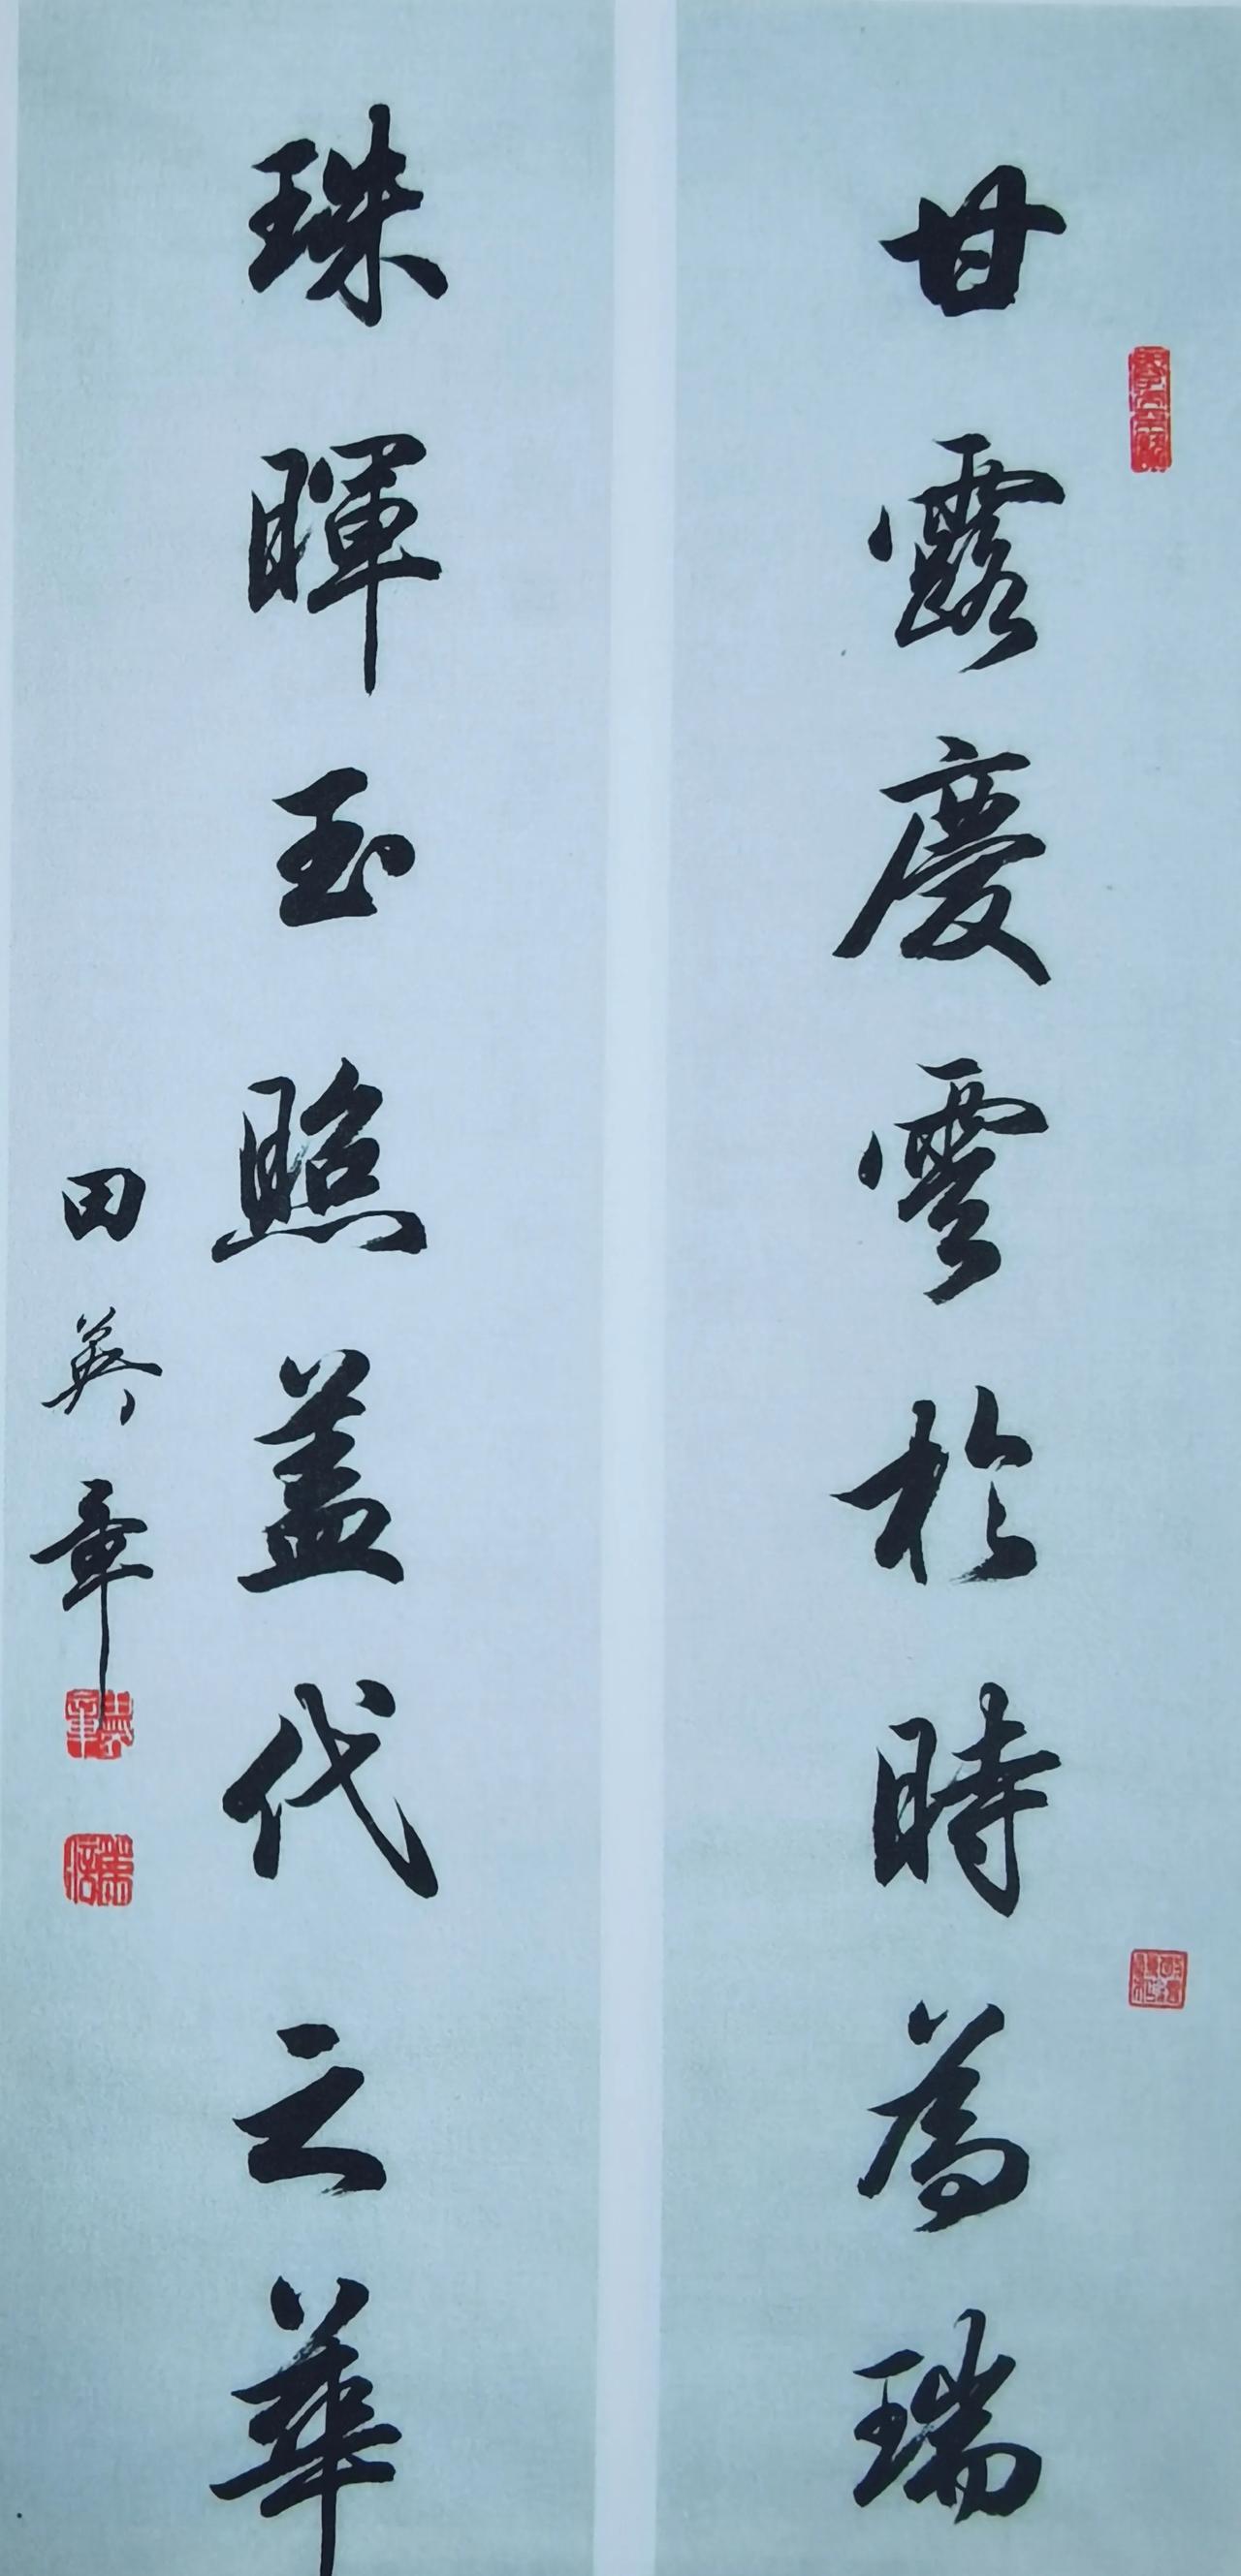 甘露慶雲於時為瑞
珠暉玉照蓋代之華
田英章
英章